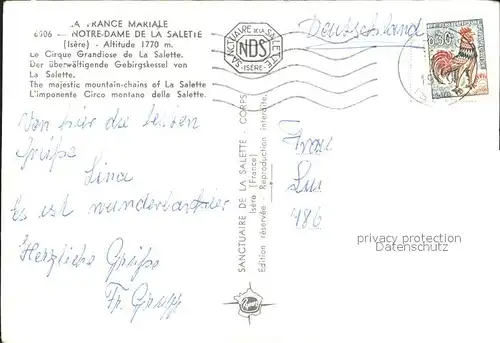 LA FRANCE MARIALE
6906 — NOTRE-DAME DE LA SALETTE
(Isère) - Altitude 1770 m.
Le Cirque Grandiose de La Salette.
Der überwältigende Gebirgskessel von
La Salette.
The majestic mountain-chains of La Salette
L'imponente Circo montano della Salette.
SANCTUAIRE DE LA SALETTE
NDS
-ISÈRE-
Deutschland
0,30
Von hier die besten
Grüße
Lina
Es ist wunderbar hier
Herzliche Grüße
Fr.
SANCTUAIRE DE LA SALETTE - CORPS
Isère (France)
Edition réservée - Reproduction interdite
Frau
486
privacy protection
Copyright OLDTHING